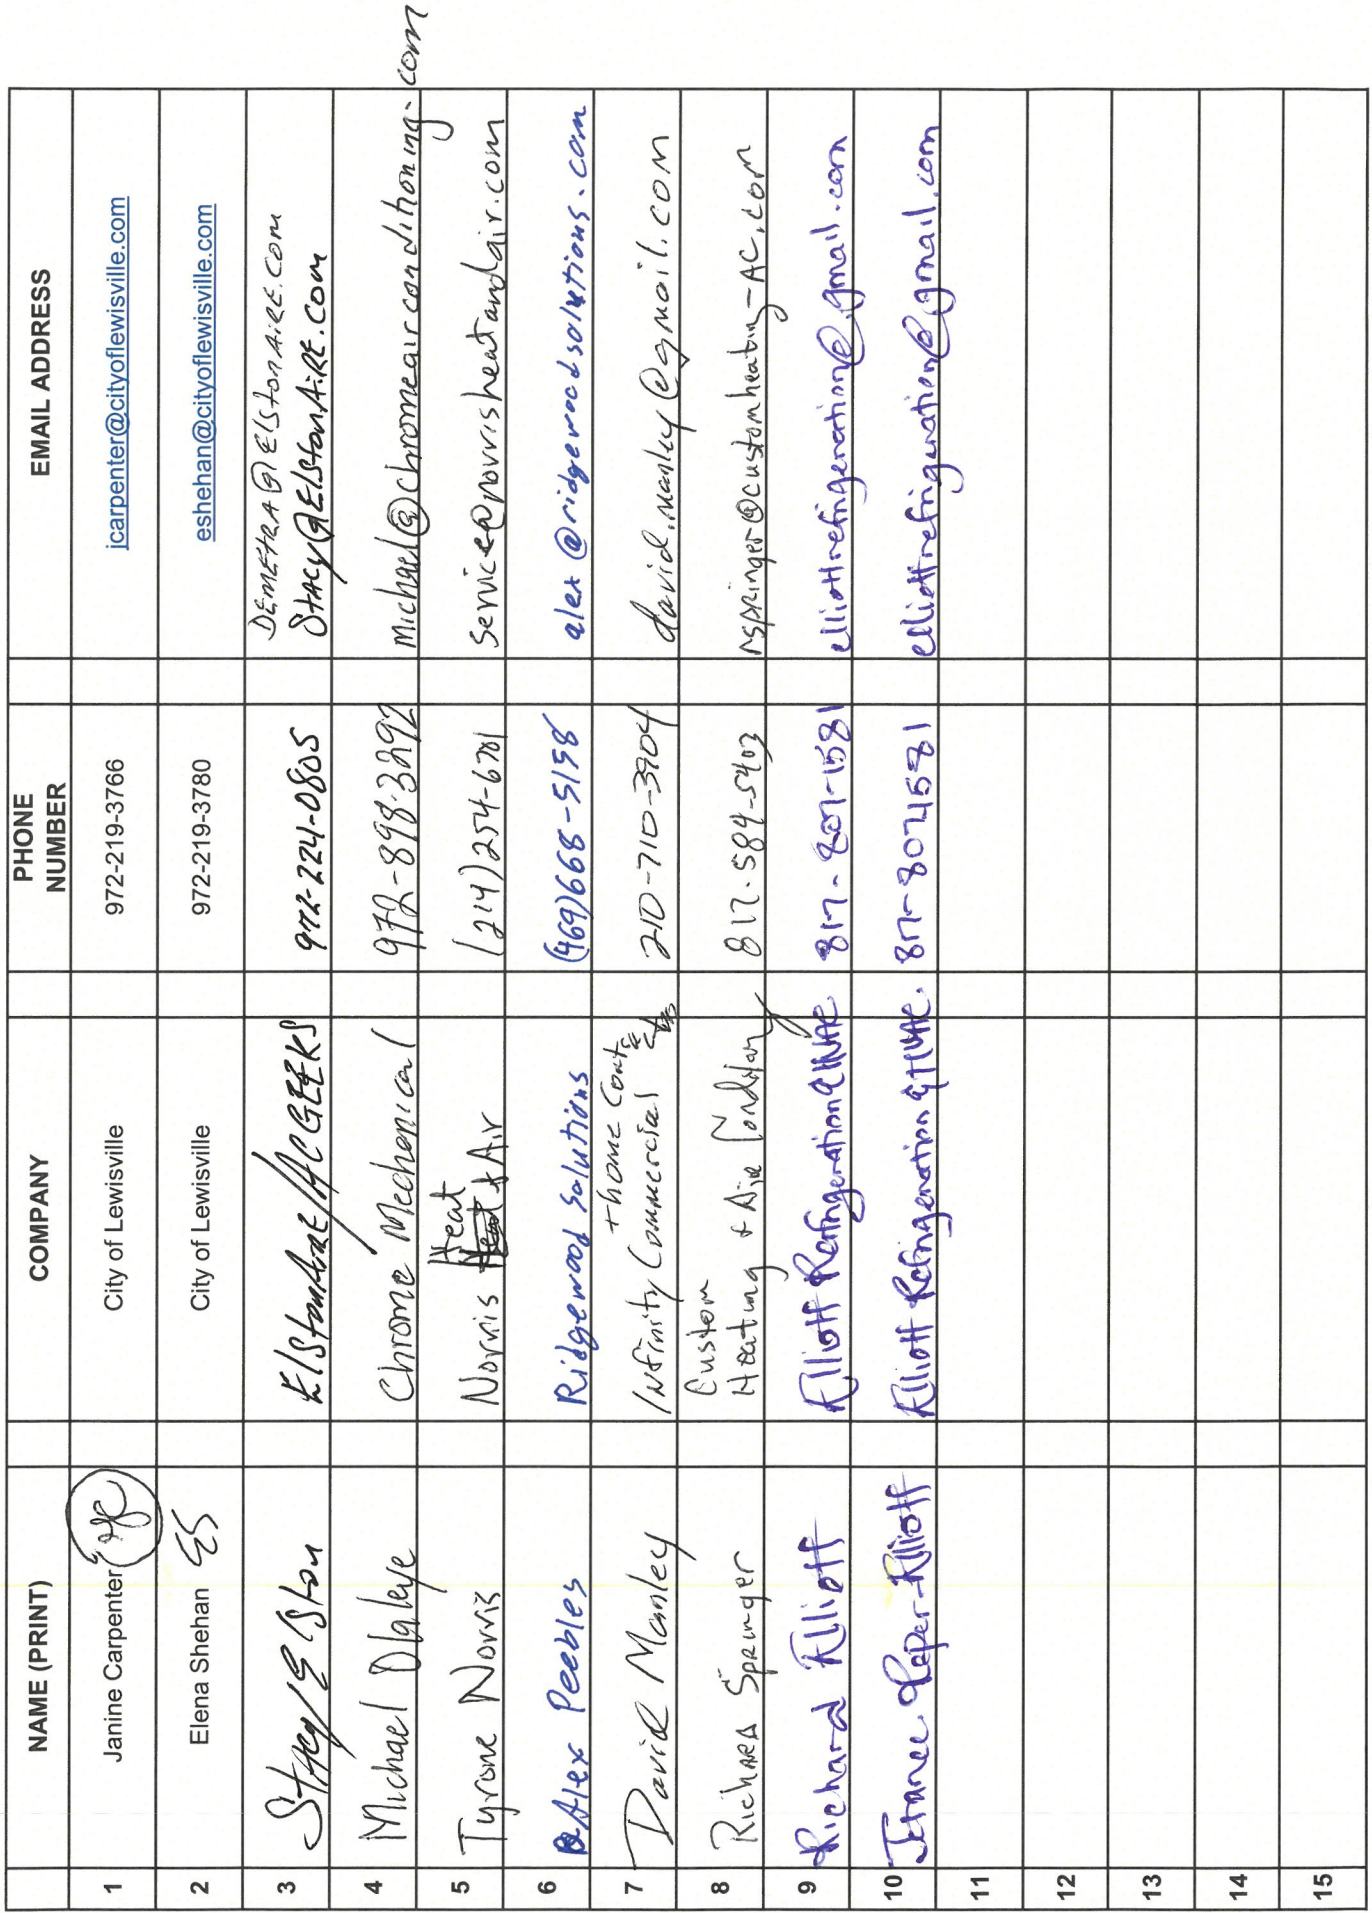 NAME (PRINT) COMPANY PHONE NUMBER EMAIL ADDRESS
1 Janine Carpenter City of Lewisville 972-219-3766 jcarpenter@cityoflewisville.com
2 Elena Shehan ES City of Lewisville 972-219-3780 eshehan@cityoflewisville.com
DEMETRA@ElstonAiRE.Com
3 Stacy Elston ElstonAire/AC GEEKS 972-224-0805 Stacy@ElstonAiRE.com
4 Michael Olaleye Chrome Mechanical 972-898-3292 michael@chromeairconditioning.com
Heat
5 Tyrone Norris Norris & Air (214)254-6781 Service@norrisheatandair.com
6 Alex Peebles Ridgewood Solutions (469)668-5158 alex@ridgewoodsolutions.com
+ Home
7 David Manley Infinity Commercial 210-710-3904 david.manley@gmail.com
Custom
8 Richard Springer Heating & Air Conditiong 817-584-5403 rspringer@customheating-AC.com
9 Richard Elliott Elliott Refrigeration & HVAC. 817-807-1581 elliottrefrigeration@gmail.com
10 Elliott Refrigeration & HVAC. 817-807-1581 elliottrefrigeration@gmail.com
11
12
13
14
15